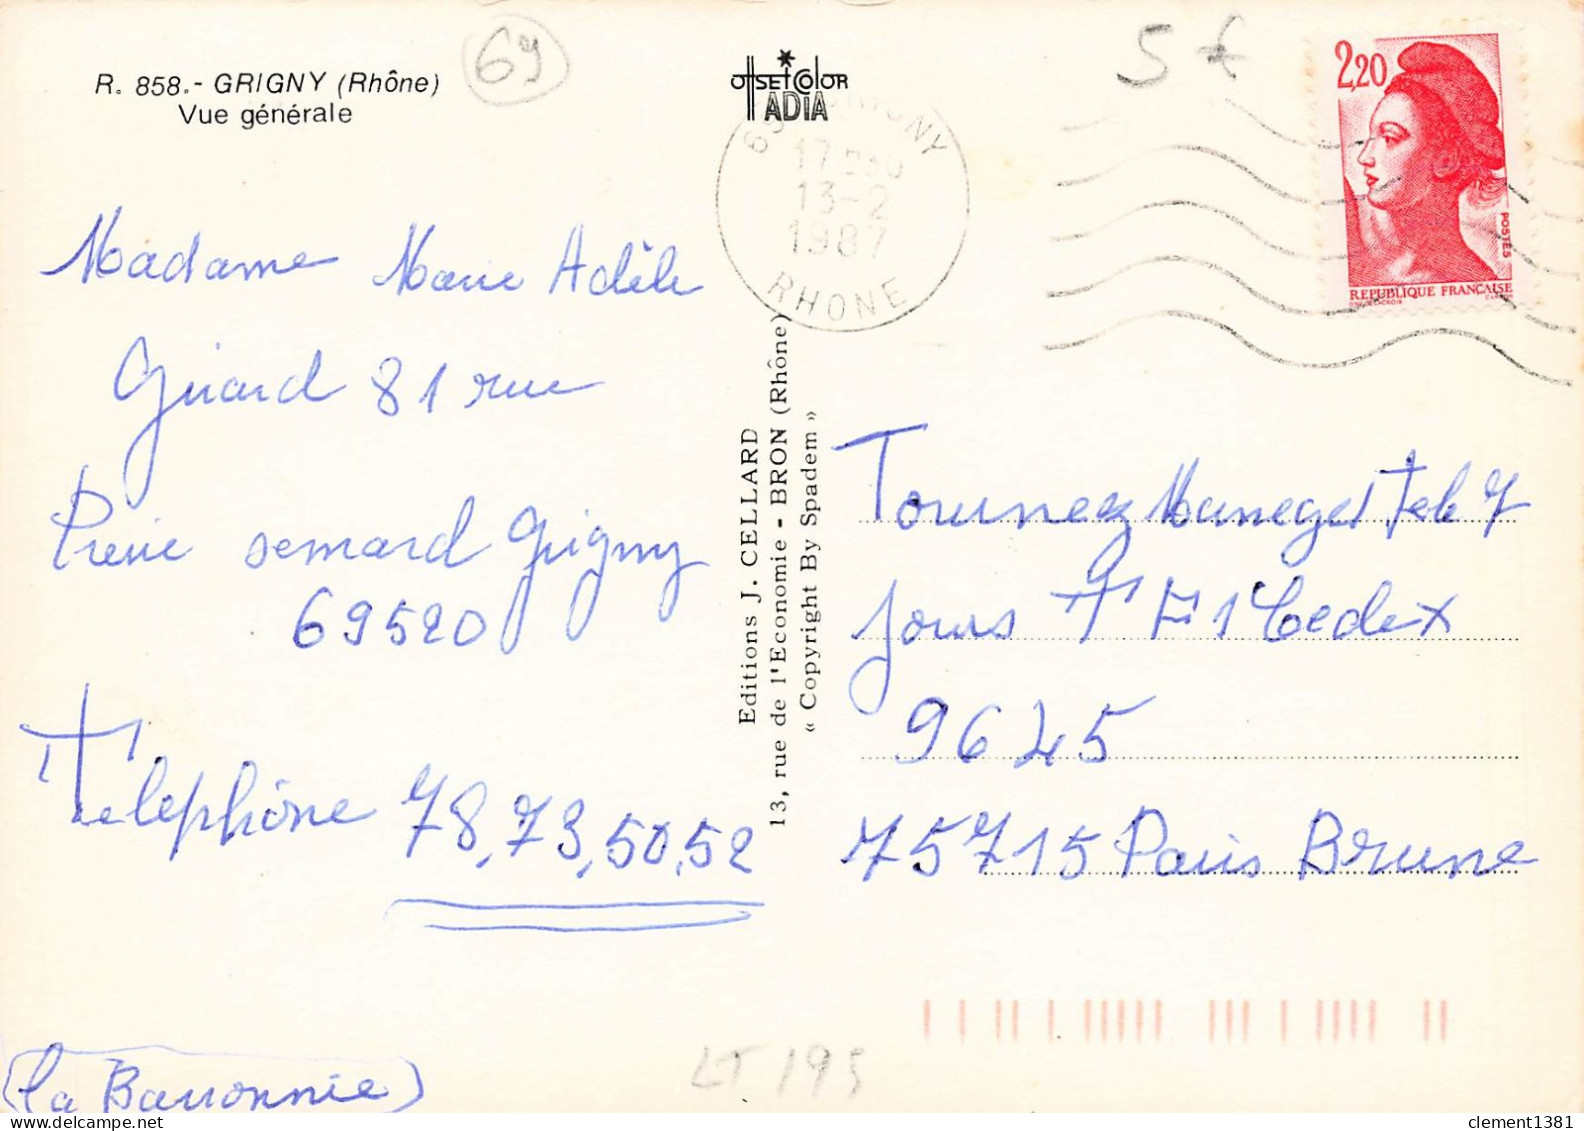 R. 858.- GRIGNY (Rhône)
Vue générale
69
OffSET COLOR
ADIA
5 €
2,20
POSTES
REPUBLIQUE FRANÇAISE
GRIGNY
13-2
1987
RHONE
Madame Marie Adèle
Girard 81 rue
Pierre semard Grigny
69520
Telephone 78,73,50,52
(la Baronnie)
Editions J. CELLARD
13, rue de l'Economie - BRON (Rhône)
« Copyright By Spadem »
Tournez Maneges Tele 7
jours TF1 Cedex
9645
75715 Paris Brune
LT 195
clement1381